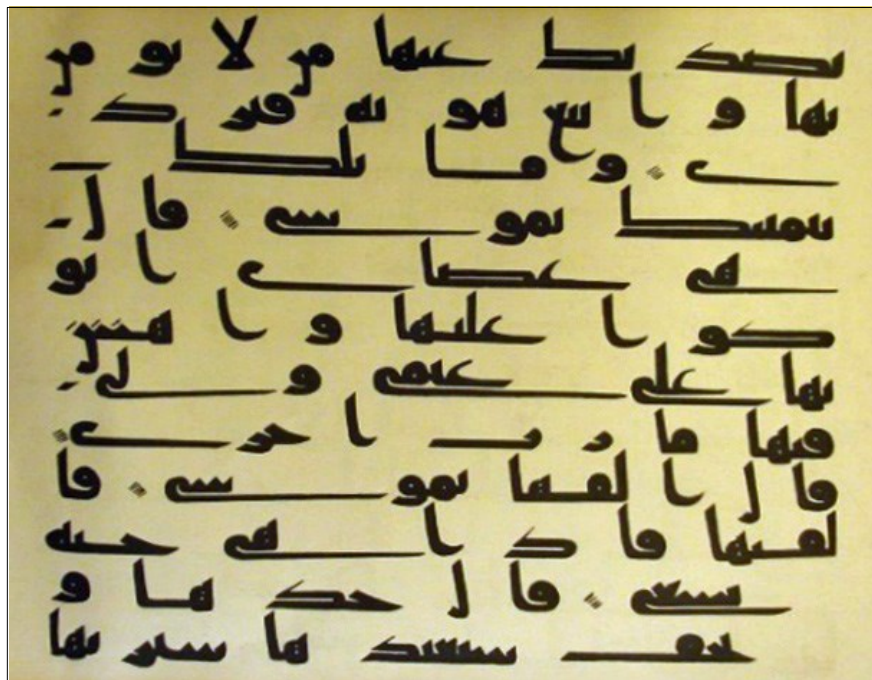 يصدنك عنها من لا يومن
بها واتبع هويه فترد
ى وما تلك
بيمينك يموسى قال
هي عصاي اتو
كوا عليها واهش
بها على غنمي ولي
فيها مارب اخرى
قال القها يموسى فا
لقيها فاذا هي حية
تسعى قال خذها و
تخف سنعيدها سيرتها